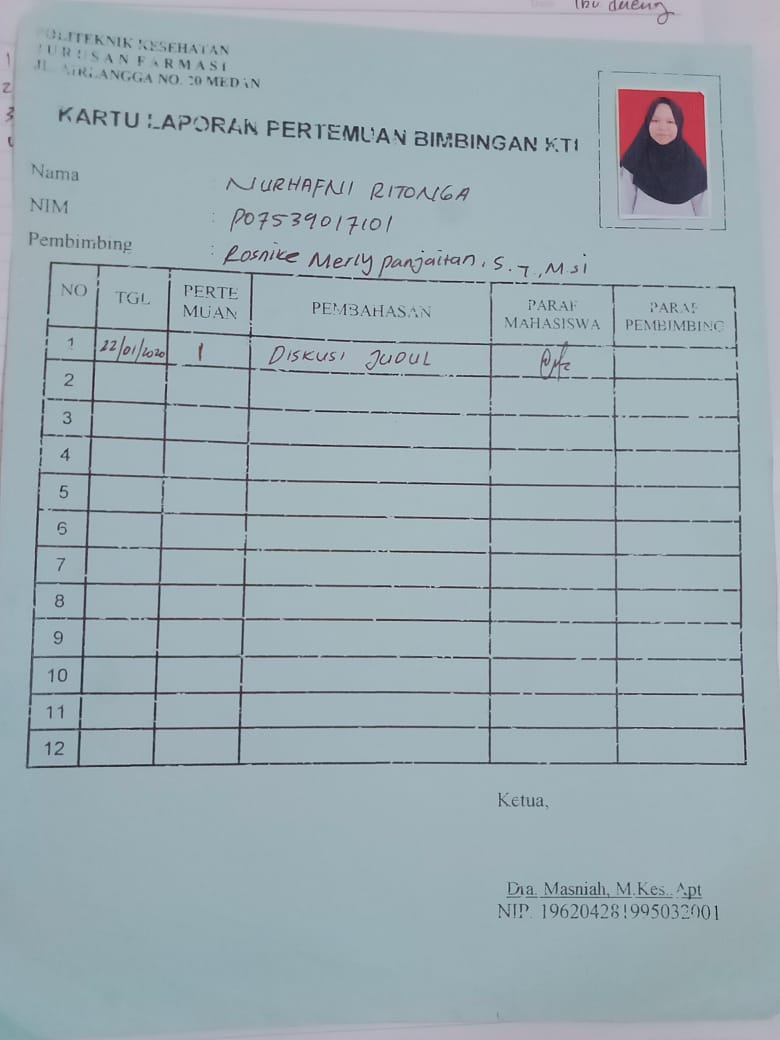 Ibu dueng
POLITEKNIK KESEHATAN
JURUSAN FARMASI
JL. AIRLANGGA NO. 20 MEDAN
KARTU LAPORAN PERTEMUAN BIMBINGAN KTI
Nama : NURHAFNI RITONGA
NIM : P07539017101
Pembimbing : Rosnike Merly Panjaitan, S.T, M.si
NO TGL PERTE MUAN PEMBAHASAN PARAF MAHASISWA PARAF PEMBIMBING
1 22/01/2020 1 DISKUSI JUDUL
2
3
4
5
6
7
8
9
10
11
12
Ketua,
Dra. Masniah, M.Kes., Apt
NIP. 196204281995032001